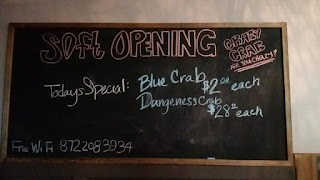 SOFT OPENING
CRAZY CRAB
ARE YOU CRAZY?
Todays Special: Blue Crab $2.00 each
Dungeness Crab $28.00 each
Free WiFi 8722083934